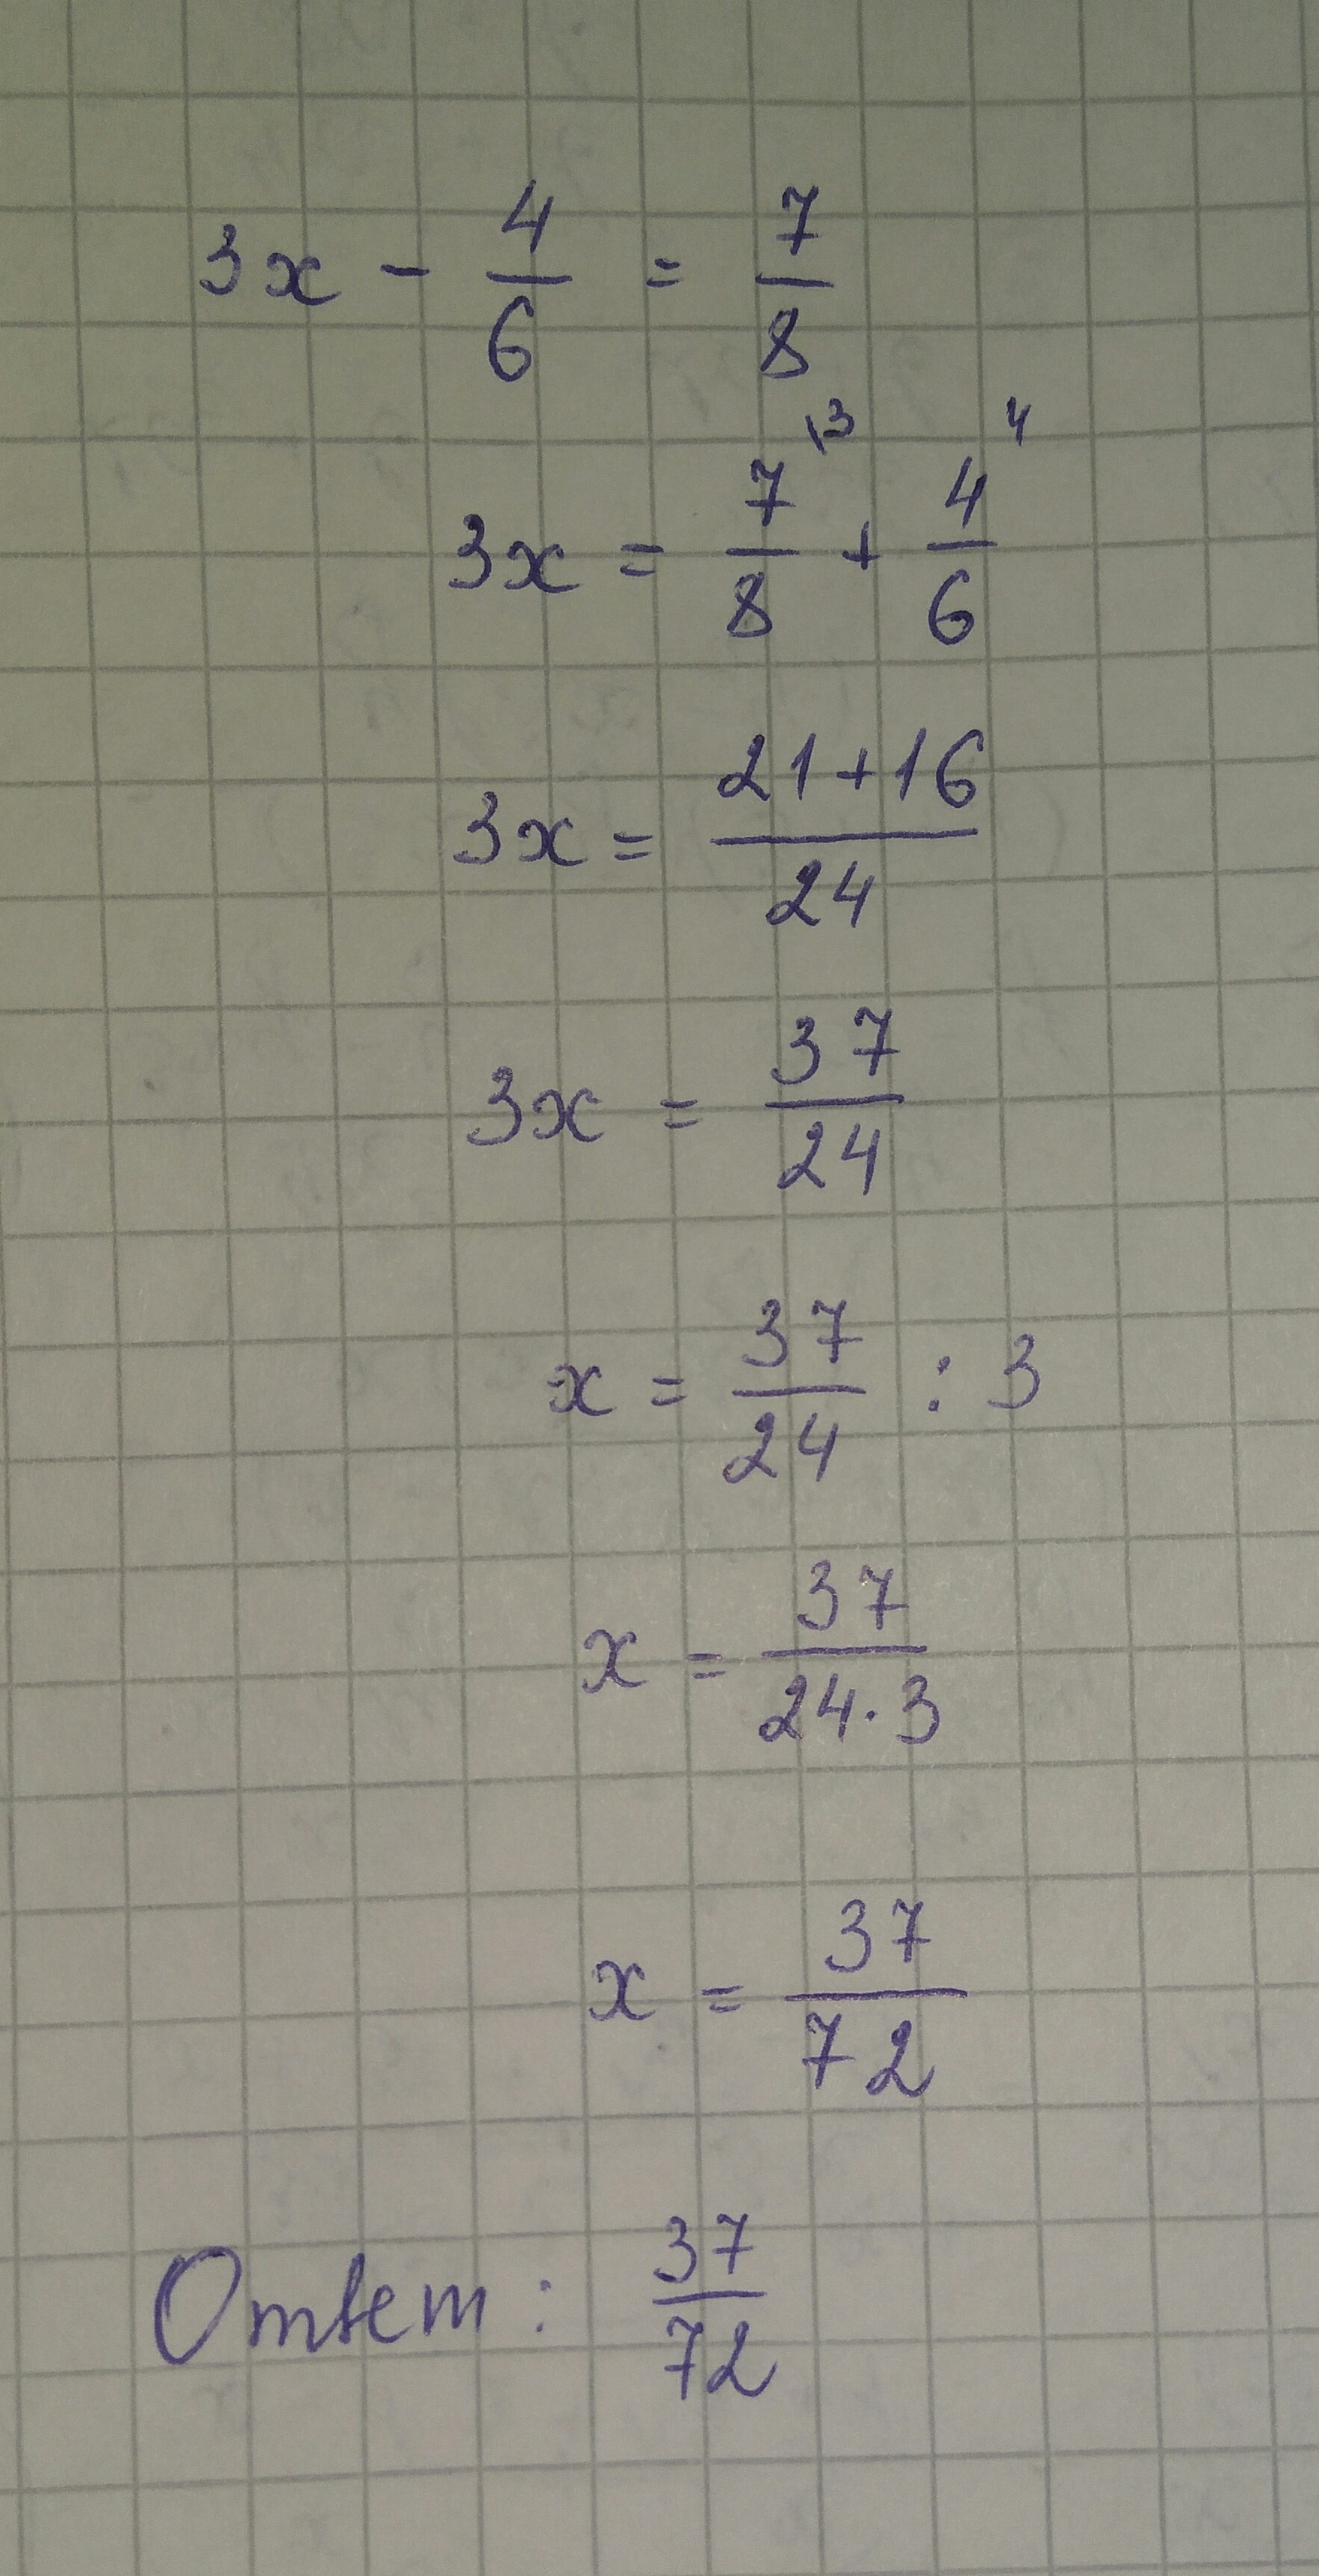 3x - 4/6 = 7/8
3x = 7/8 \3 + 4/6 4
3x = 21+16/24
3x = 37/24
x = 37/24 : 3
x = 37/24·3
x = 37/72
Ответ: 37/72